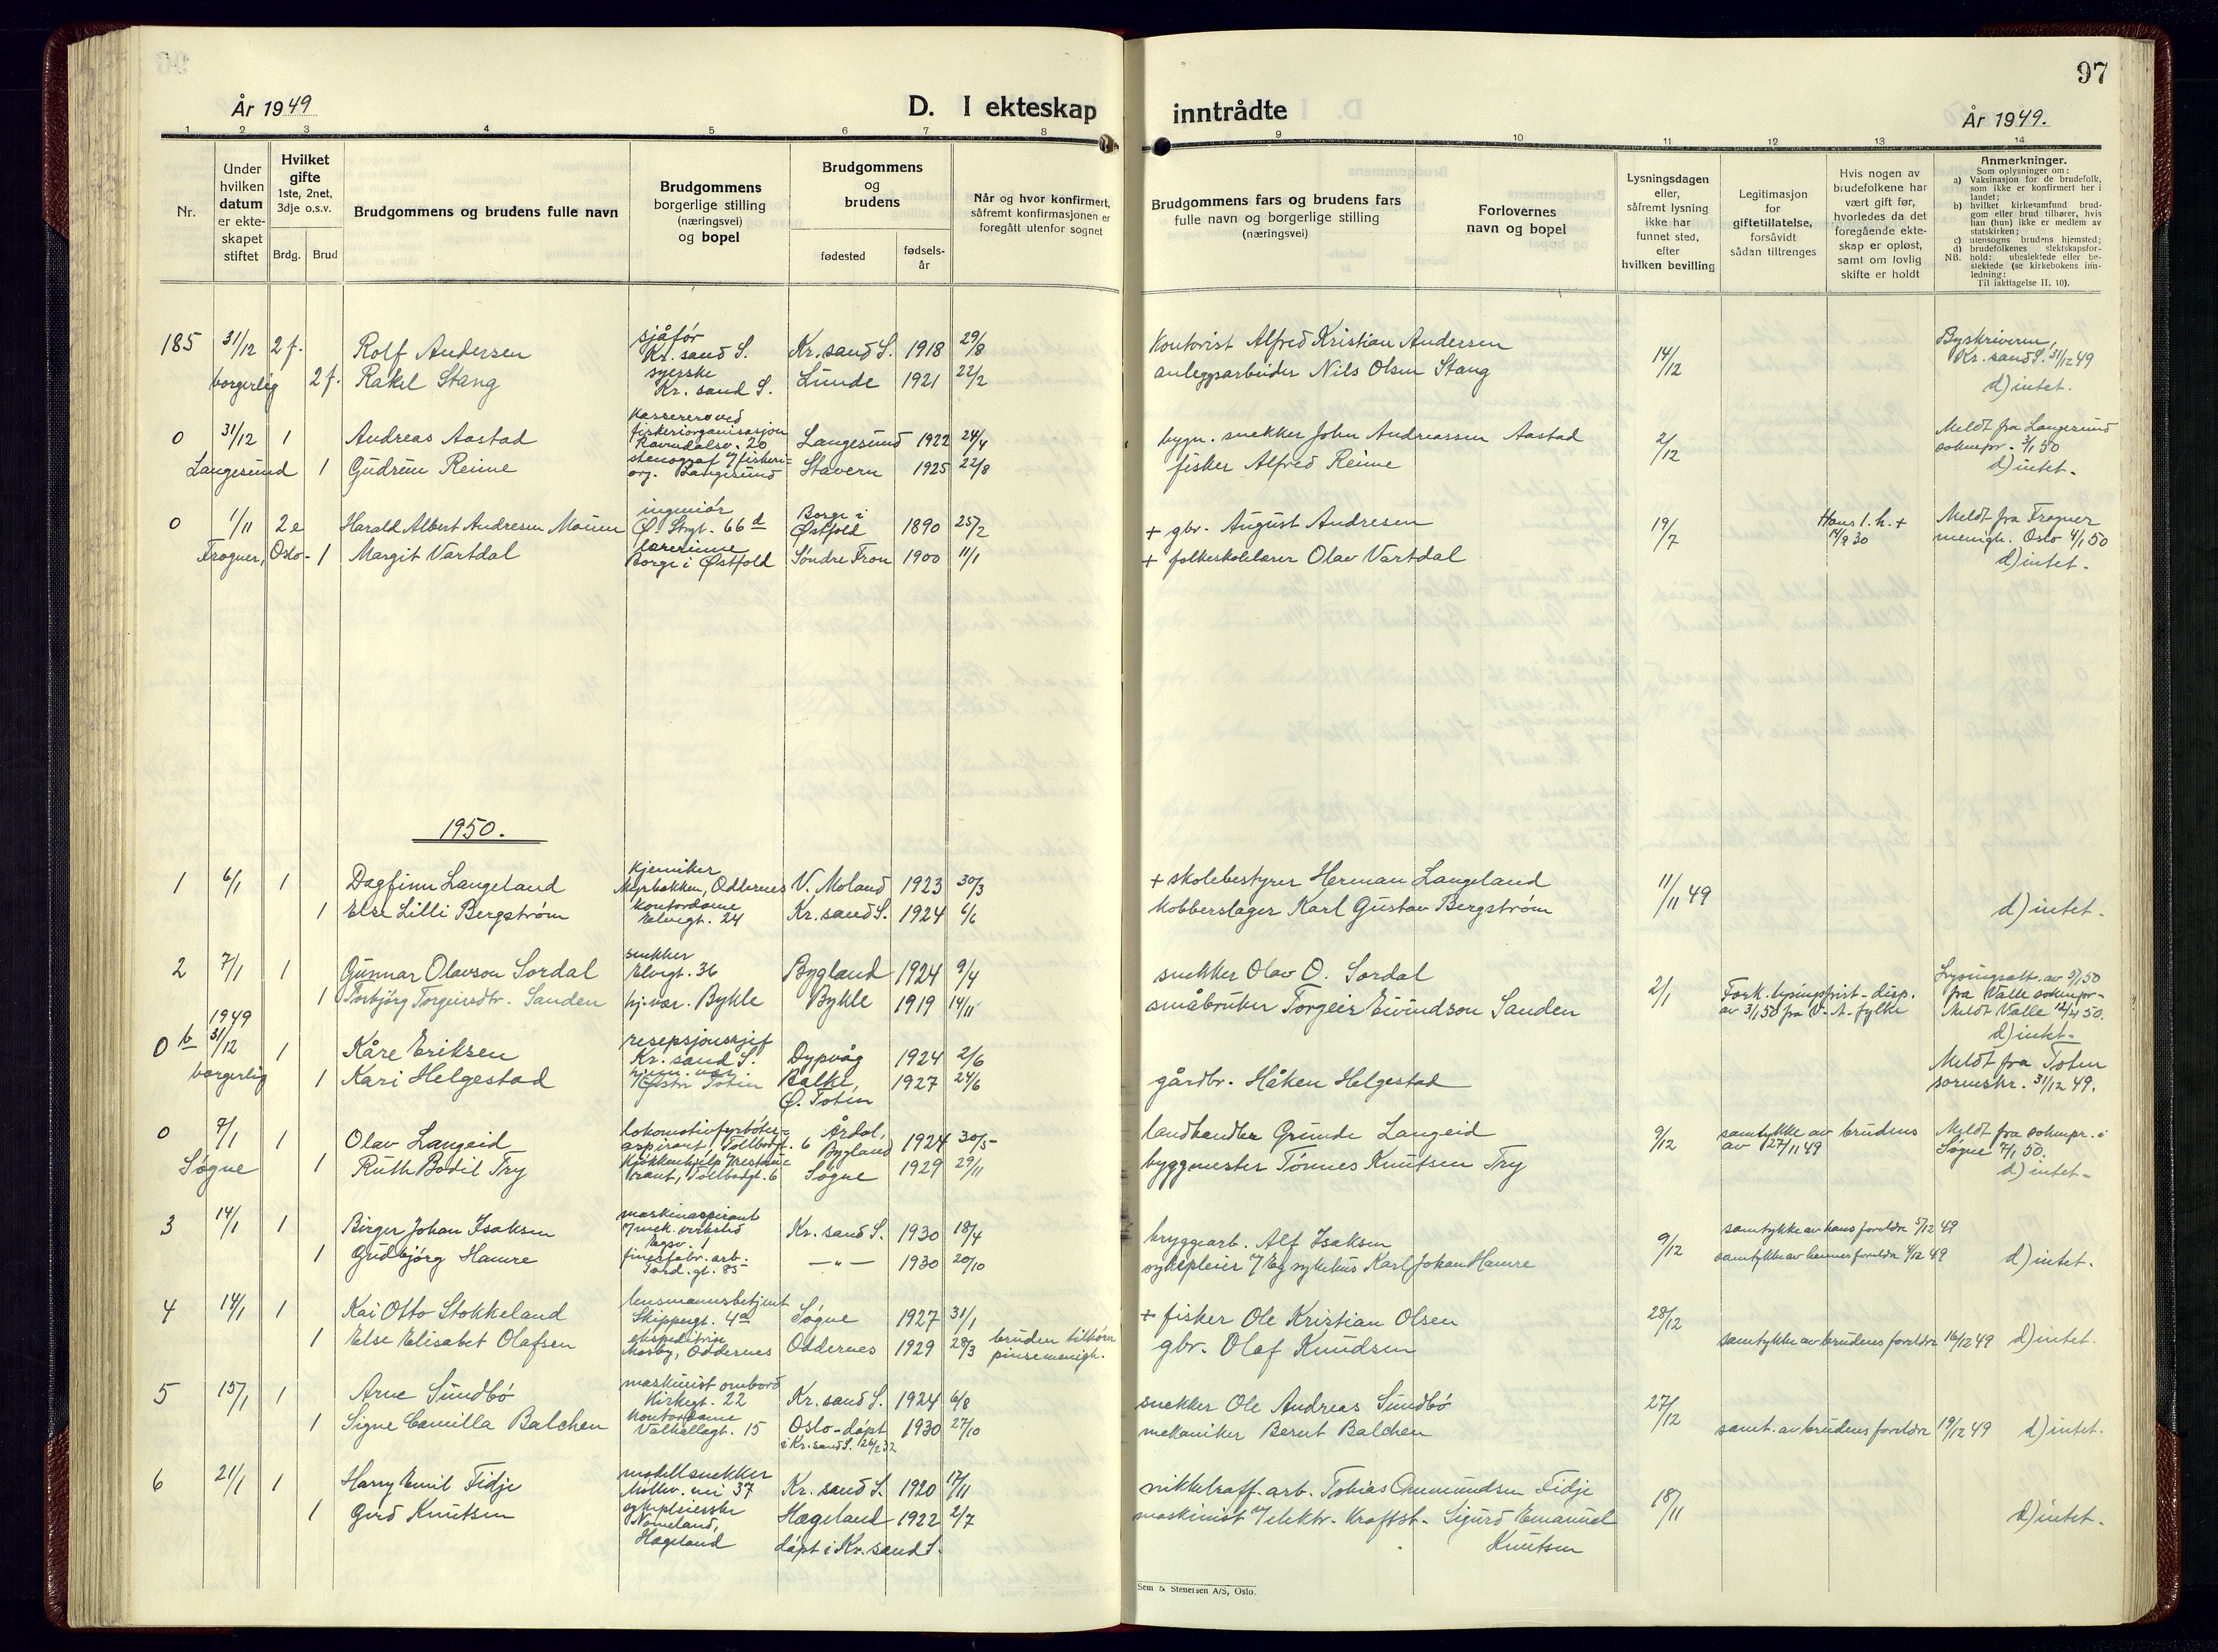 97
År 1949
D. I ekteskap inntrådte
År 1949.
1 2 3 4 5 6 7 8 9 10 11 12 13 14
Nr.
Under hvilken datum er ekte-skapet stiftet
Hvilket gifte
1ste, 2net, 3dje o.s.v.
Brdg. Brud
Brudgommens og brudens fulle navn
Brudgommens borgerlige stilling (næringsvei) og bopel
Brudgommens og brudens
fødested
fødsels-år
Når og hvor konfirmert, såfremt konfirmasjonen er foregått utenfor sognet
Brudgommens fars og brudens fars fulle navn og borgerlige stilling (næringsvei)
Forlovernes navn og bopel
Lysningsdagen eller, såfremt lysning ikke har funnet sted, efter hvilken bevilling
Legitimasjon for giftetillatelse, forsåvidt sådan tiltrenges
Hvis nogen av brudefolkene har vært gift før, hvorledes da det foregående ekte-skap er opløst, samt om lovlig skifte er holdt
Anmerkninger.
Som oplysninger om:
a) Vaksinasjon for de brudefolk, som ikke er konfirmert her i landet;
b) hvilket kirkesamfund brud-gom eller brud tilhører, hvis han (hun) ikke er medlem av statskirken;
c) utensogns brudens hjemsted;
d) brudefolkenes slektskapsfor-hold: ubeslektede eller be-slektede (se kirkebokens inn-ledning:
NB.
Til iakttagelse II, 10).
185 31/12 2 f. Rolf Andersen sjåfør Kr. sand S. Kr. sand S. 1918 29/8 Kontorist Alfred Kristian Andersen 14/12 Byskriveren, Kr. sand S. 31/12 49
borgerlig 2 f. Rakel Stang syerske Kr. sand S. Lunde 1921 22/2 anleggsarbeider Nils Olsen Stang d) intet.
0 31/12 1 Andreas Aastad kasserer ved fiskeriorganisasjon Ravndalsv. 20 Langesund 1922 24/4 bygn. snekker John Andreassen Aastad 2/12 Meldt fra Langesund soknepr. 3/1 50
Langesund 1 Gudrun Reime stenograf v/ fiskeri-org. Langesund Stavern 1925 22/8 fisker Alfred Reime d) intet.
0 1/11 2 e Harald Albert Andresen Mouen ingeniør Ø. Strgt. 66 d Borge i Østfold 1890 25/2 + gbr. August Andresen 19/7 Hans 1. h. + 14/9 30 Meldt fra Frogner menigh. Oslo 4/1 50
Frogner, Oslo - 1 Margit Vartdal lærerinne Borge i Østfold Søndre Fron 1900 11/1 + folkeskolelærer Olav Vartdal d) intet.
1950.
1 6/1 1 Dagfinn Langeland kjemiker Myrbakken, Oddernes V. Moland 1923 30/3 + skolebestyrer Herman Langeland 11/11 49
1 Else Lilli Bergstrøm kontordame Elvegt. 24 Kr. sand S. 1924 6/6 kobberslager Karl Gustav Bergstrøm d) intet.
2 7/1 1 Gunnar Olavson Sordal snekker Elvegt. 36 Bygland 1924 9/4 snekker Olav O. Sordal 2/1 Fork. lysningsfrist - disp. av 3/1 50 fra V.-A. fylke Lysingsatt. av 5/1 50 fra Valle soknepr.
1 Torbjörg Torgeirsdtr. Sanden hj. vær. Bykle Bykle 1919 14/11 småbruker Torgeir Eivindson Sanden Meldt Valle 12/4 50. d) intet.
1949
0 b 31/12 1 Kåre Eriksen resepsjonssjef Kr. sand S. Dypvåg 1924 2/6 Meldt fra Toten sorenskr. 31/12 49.
borgerlig 1 Kari Helgestad hjem. vær. Østre Toten Balke, Ø. Toten 1927 24/6 gårdbr. Håken Helgestad
0 7/1 1 Olav Langeid lokomotivfyrbøter-aspirant, Tollbodgt. 6 Årdal, Bygland 1924 30/5 landhandler Grunde Langeid 9/12 samtykke av brudens av 27/11 49 Meldt fra soknepr. i Søgne 7/1 50.
Søgne 1 Ruth Bodil Try kjøkkenhjelp v/restau-rant, Tollbodgt. 6 Søgne 1929 29/11 byggmester Tønnes Knutsen Try d) intet.
3 14/1 1 Birger Johan Isaksen maskinaspirant v/mek. verksted Egsv. 1 Kr. sand S. 1930 18/4 bryggearb. Alf Isaksen 9/12 samtykke av hans foreldre 5/12 49
1 Gudbjörg Hamre finerfabr. arb. Tord. gt. 85 — " — 1930 20/10 sykepleier v/ Eg sykehus Karl Johan Hamre samtykke av hennes foreldre 4/12 49 d) intet.
4 14/1 1 Kai Otto Stokkeland lensmannsbetjent Skippergt. 4 a Søgne 1927 31/1 + fisker Ole Kristian Olsen 28/12
1 Else Elisabet Olafsen ekspeditrise Mosby, Oddernes Oddernes 1929 28/3 bruden tilhører pinsemenigh. gbr. Olaf Knudsen samtykke av brudens foreldre 16/12 49 d) intet.
5 15/1 1 Arne Sundbö maskinist ombord Kirkegt. 22 Kr. sand S. 1924 6/8 snekker Ole Andreas Sundbö 27/12
1 Signe Camilla Balchen kontordame Valhallagt. 15 Oslo - døpt i Kr. sand S. 26/2 32 1930 27/10 mekaniker Bernt Balchen samt. av brudens foreldre 19/12 49 d) intet.
6 21/1 1 Harry Emil Fidje modellsnekker Møllev. nei 37 Kr. sand S. 1920 17/11 nikkelraff. arb. Tobias Ommundsen Fidje 18/11
1 Gerd Knutsen sykepleierske Nomeland, Hægeland Hægeland døpt i Kr. sand S. 1922 2/7 maskinist v/ elektr. kraftst. Sigurd Emanuel Knutsen d) intet.
Sem & Stenersen A/S, Oslo.